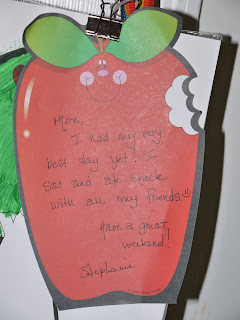 Mom,
I had my very
best day yet! I
sat and ate snack
with all my friends. ☺
Have a great
weekend!
Stephanie